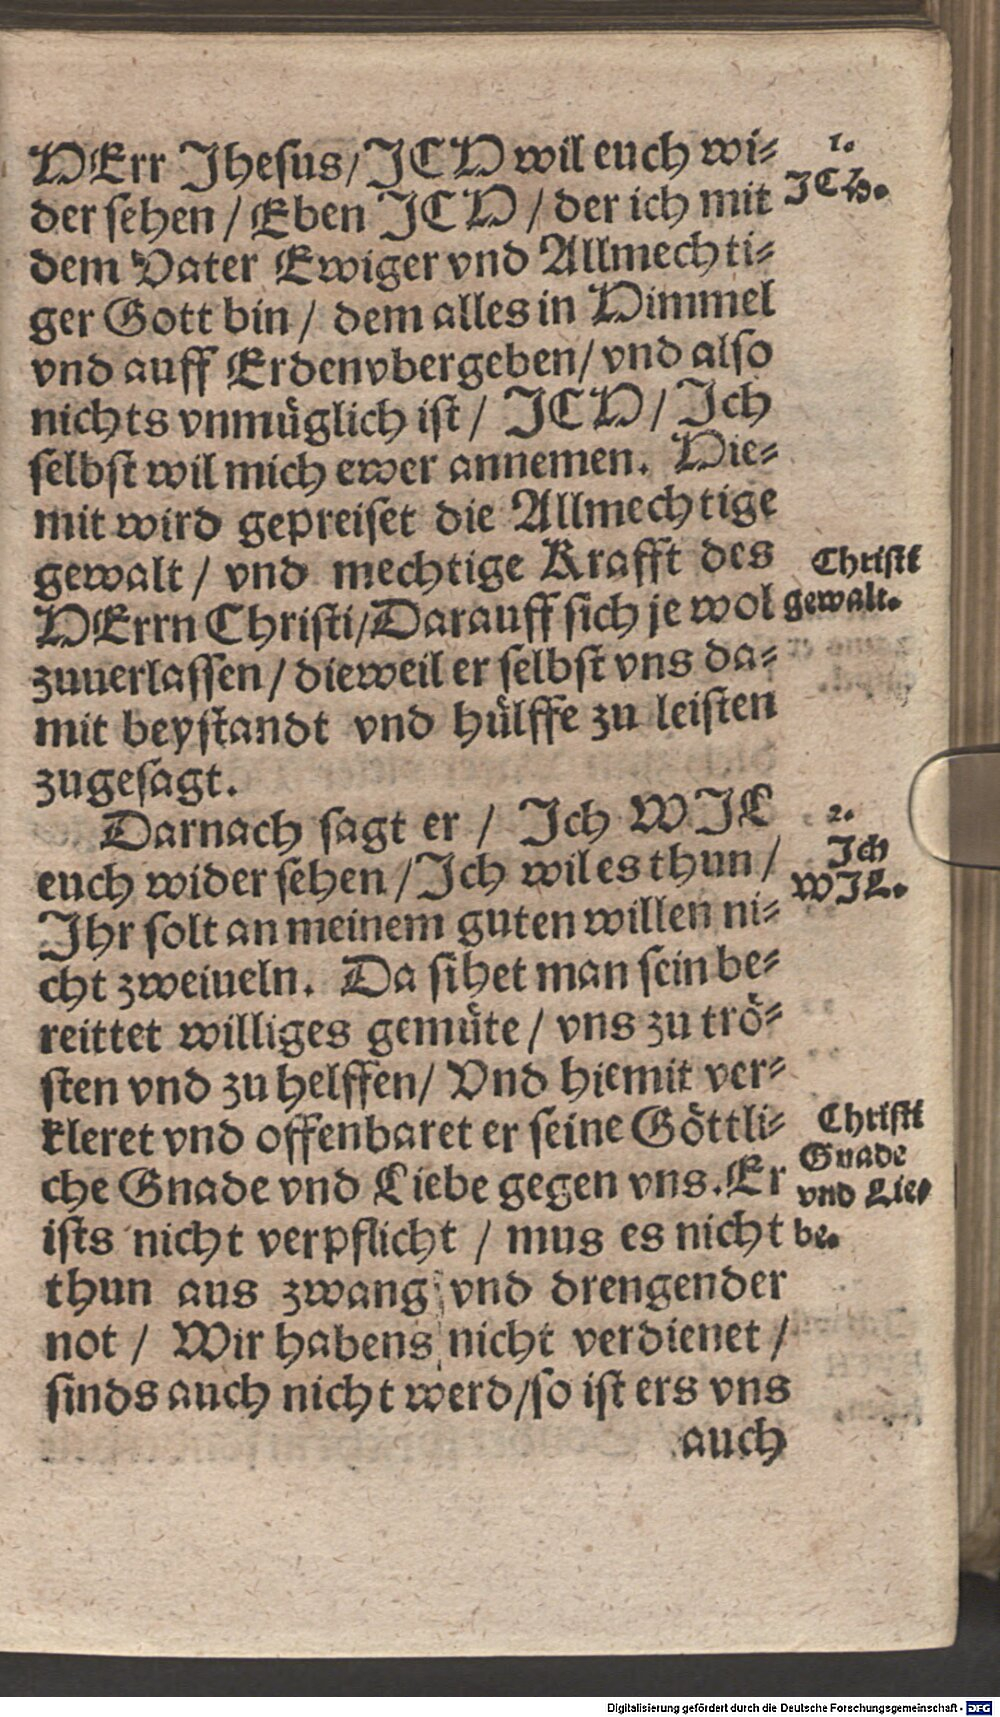 HErr Jhesus/ JCH wil euch wi-
der sehen / Eben JCH / der ich mit
dem Vater Ewiger vnd Allmechti-
ger Gott bin / dem alles in Himmel
vnd auff Erden vbergeben/ vnd also
nichts vnmüglich ist / JCH / Jch
selbst wil mich ewer annemen. Hie-
mit wird gepreiset die Allmechtige
gewalt / vnd mechtige Krafft des
HErrn Christi/ Darauff sich je wol
zuuerlassen / dieweil er selbst vns da-
mit beystandt vnd hülffe zu leisten
zugesagt.
Darnach sagt er / Jch WJL
euch wider sehen / Jch wil es thun /
Jhr solt an meinem guten willen ni-
cht zweiueln. Da sihet man sein be-
reittet williges gemüte / vns zu trö-
sten vnd zu helffen/ Vnd hiemit ver-
kleret vnd offenbaret er seine Göttli-
che Gnade vnd Liebe gegen vns. Er
ists nicht verpflicht / mus es nicht
thun aus zwang vnd drengender
not / Wir habens nicht verdienet /
sinds auch nicht werd/ so ist ers vns
auch
1.
JCH.
Christi
gewalt.
2.
Jch
WJL.
Christi
Gnade
vnd Lie-
be.
Digitalisierung gefördert durch die Deutsche Forschungsgemeinschaft - DFG